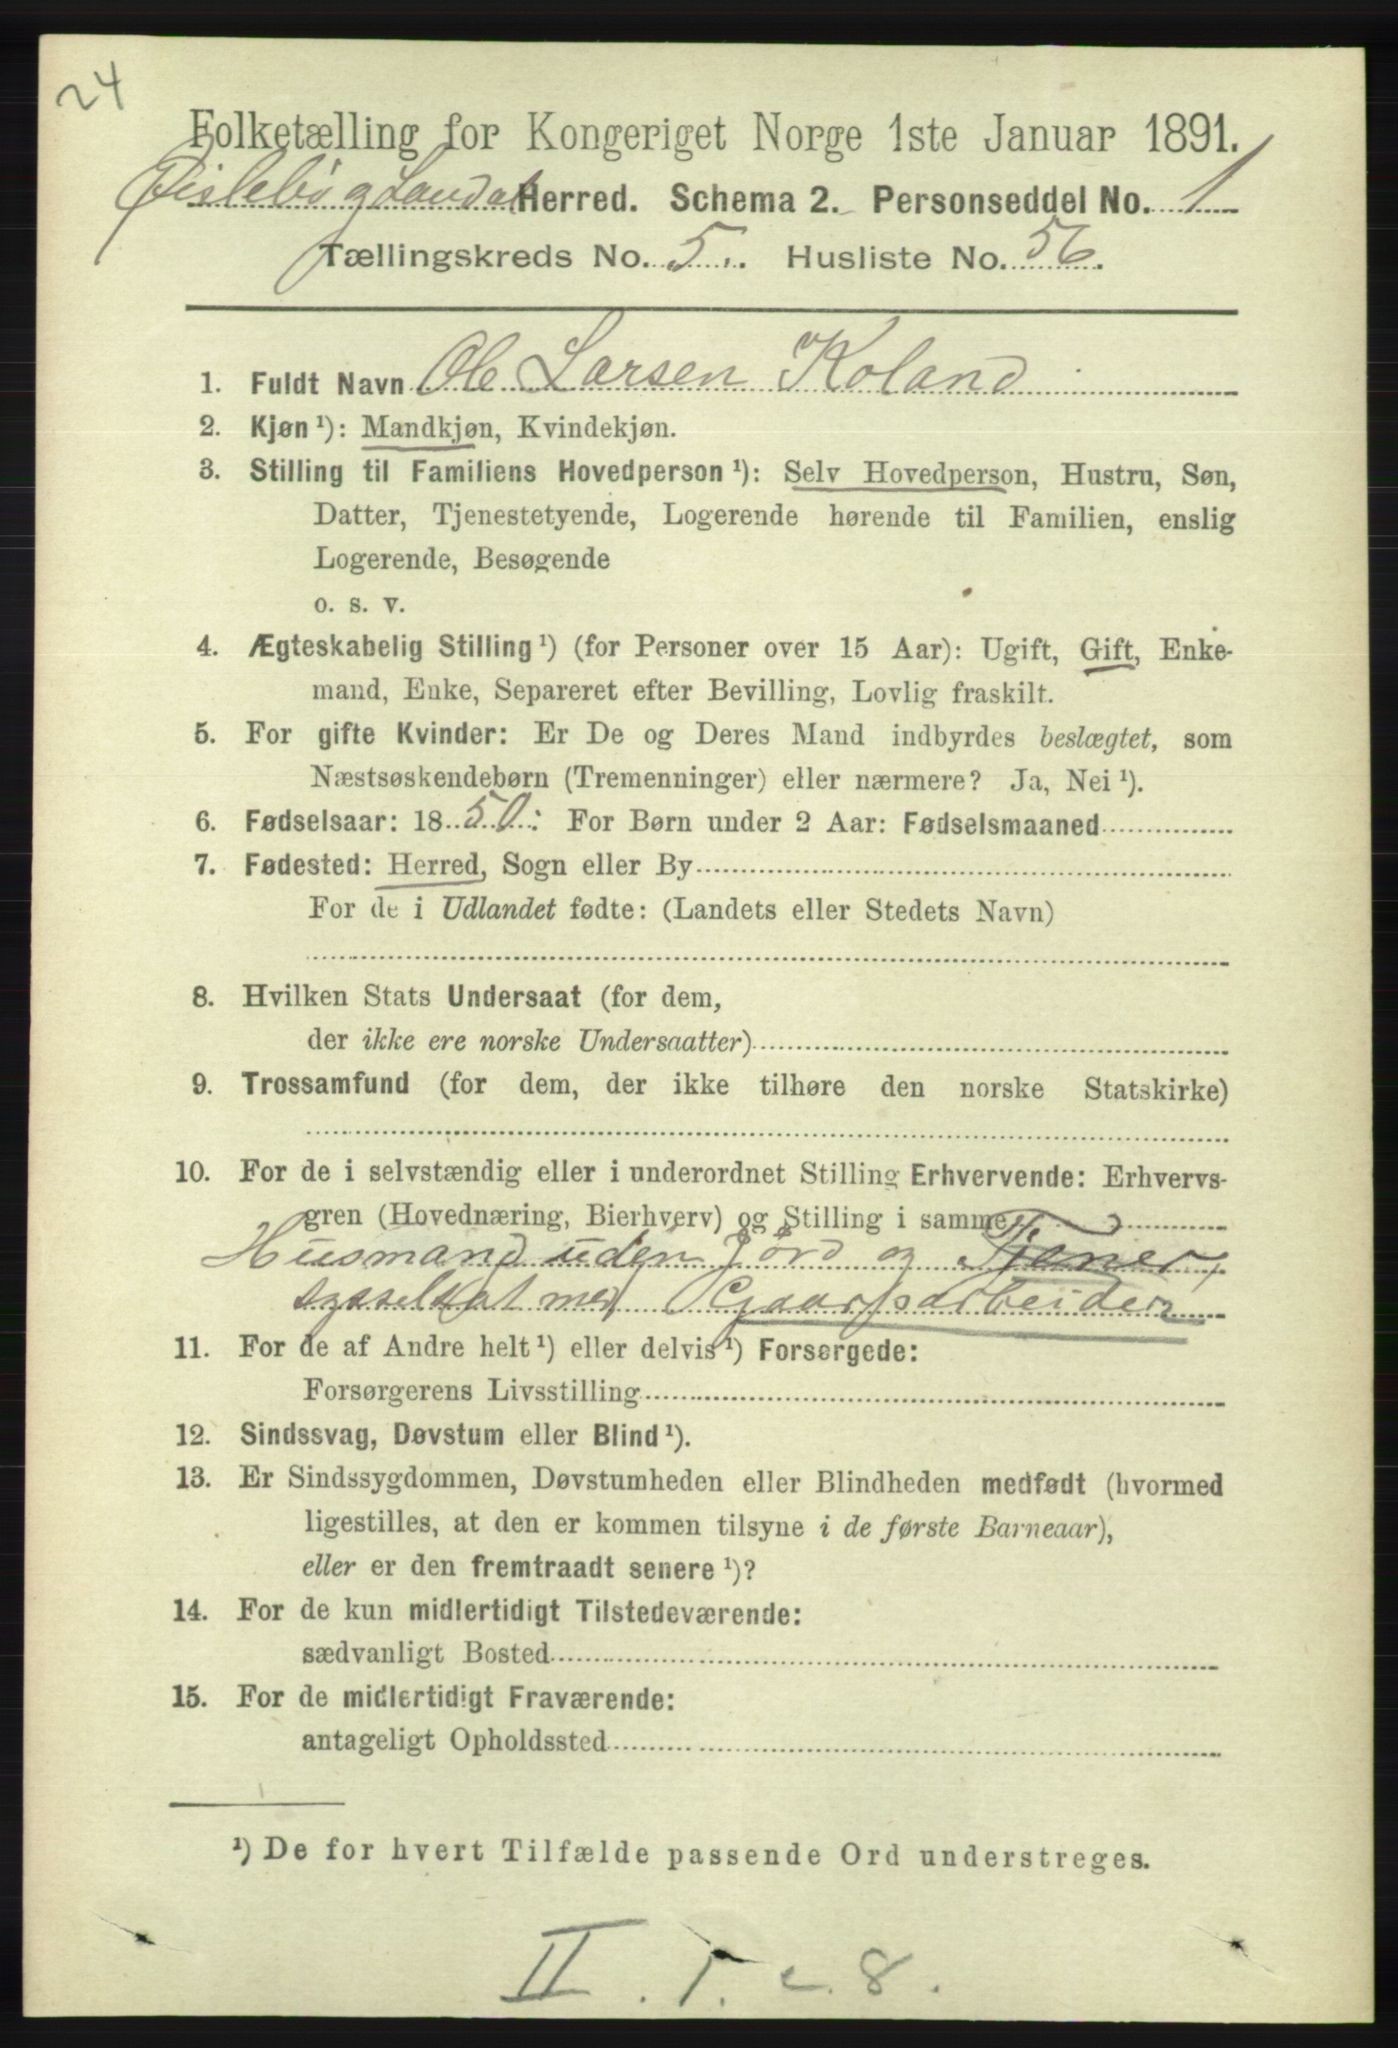 24
Folketælling for Kongeriget Norge 1ste Januar 1891.
Øislebø og Laudal Herred. Schema 2. Personseddel No. 1
Tællingskreds No. 5. Husliste No. 56.
1. Fuldt Navn Ole Larsen Koland
2. Kjøn ¹): Mandkjøn, Kvindekjøn.
3. Stilling til Familiens Hovedperson ¹): Selv Hovedperson, Hustru, Søn,
Datter, Tjenestetyende, Logerende hørende til Familien, enslig
Logerende, Besøgende
o. s. v.
4. Ægteskabelig Stilling ¹) (for Personer over 15 Aar): Ugift, Gift, Enke-
mand, Enke, Separeret efter Bevilling, Lovlig fraskilt.
5. For gifte Kvinder: Er De og Deres Mand indbyrdes beslægtet, som
Næstsøskendebørn (Tremenninger) eller nærmere? Ja, Nei ¹).
6. Fødselsaar: 1850. For Børn under 2 Aar: Fødselsmaaned
7. Fødested: Herred, Sogn eller By
For de i Udlandet fødte: (Landets eller Stedets Navn)
8. Hvilken Stats Undersaat (for dem,
der ikke ere norske Undersaatter)
9. Trossamfund (for dem, der ikke tilhøre den norske Statskirke)
10. For de i selvstændig eller i underordnet Stilling Erhvervende: Erhvervs-
gren (Hovednæring, Bierhverv) og Stilling i samme
Husmand uden Jord og Tjener,
sysselsat med Gaardsarbeider
11. For de af Andre helt ¹) eller delvis ¹) Forsørgede:
Forsørgerens Livsstilling
12. Sindssvag, Døvstum eller Blind ¹).
13. Er Sindssygdommen, Døvstumheden eller Blindheden medfødt (hvormed
ligestilles, at den er kommen tilsyne i de første Barneaar),
eller er den fremtraadt senere ¹)?
14. For de kun midlertidigt Tilstedeværende:
sædvanligt Bosted
15. For de midlertidigt Fraværende:
antageligt Opholdssted
¹) De for hvert Tilfælde passende Ord understreges.
II. 1. c. 8.